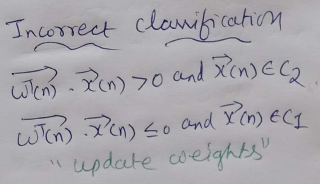 Incorrect classification
w^T(n) . x(n) > 0 and x(n) ∈ C2
w^T(n) . x(n) ≤ 0 and x(n) ∈ C1
"update weights"